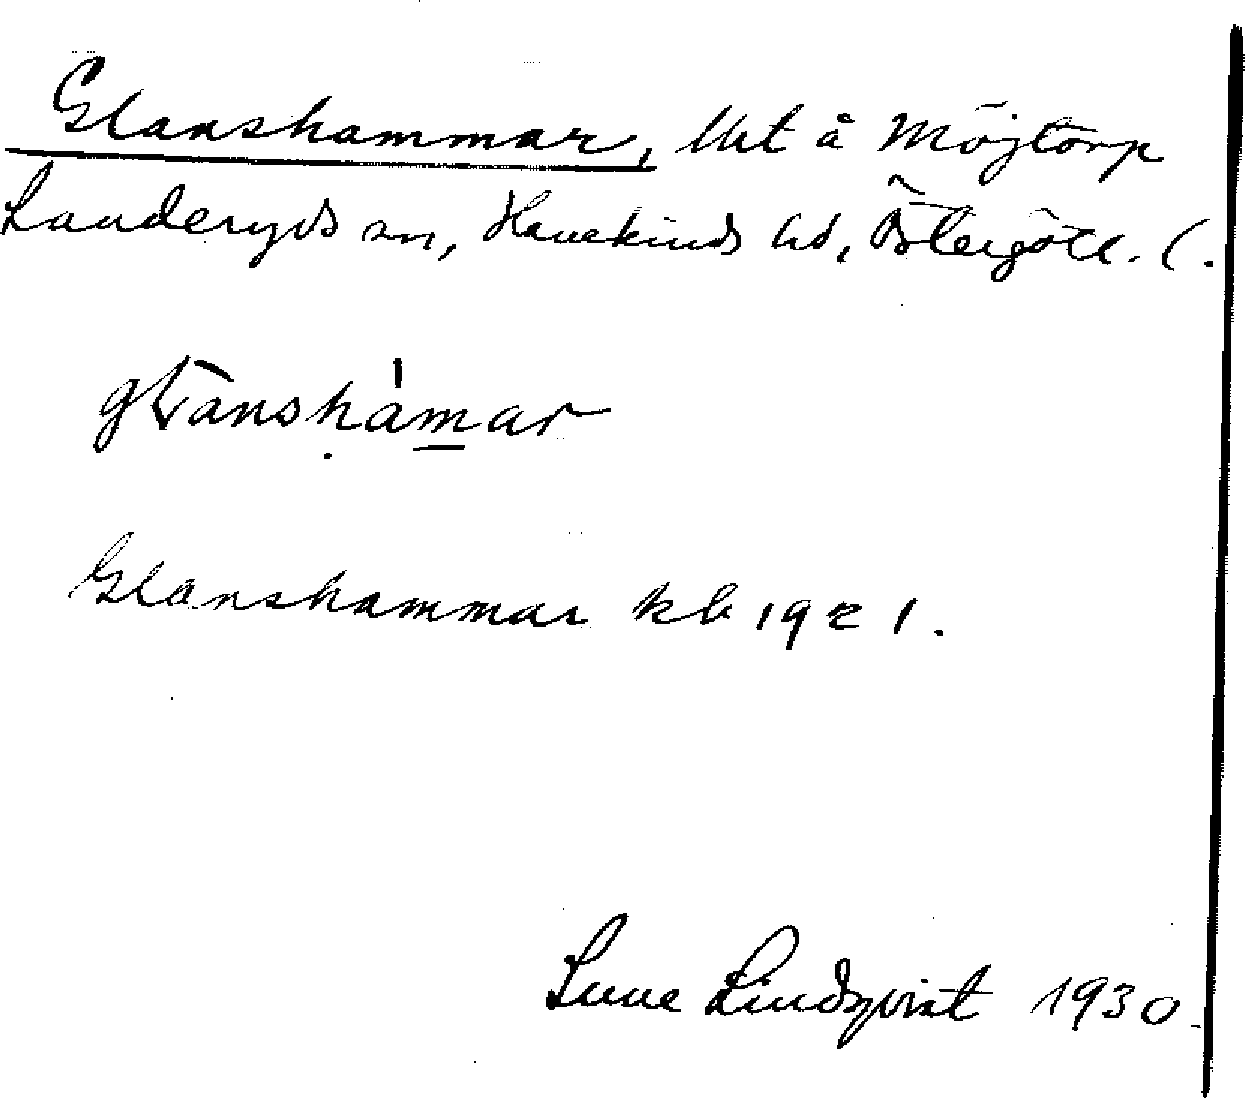 Glanshammar, lht å Möjtorp
Landeryds sn, Hanekinds hd, Östergötl. l.
glànshámar
Glanshammar kb 1921.
Sune Lindqvist 1930